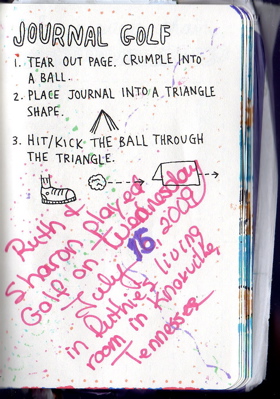 JOURNAL GOLF
1. TEAR OUT PAGE. CRUMPLE INTO
A BALL.
2. PLACE JOURNAL INTO A TRIANGLE
SHAPE.
3. HIT/KICK THE BALL THROUGH
THE TRIANGLE.
Ruth &
Sharon played
Golf on Wednesday
July 16, 2008
in Ruthie's living
room in Knoxville,
Tennessee